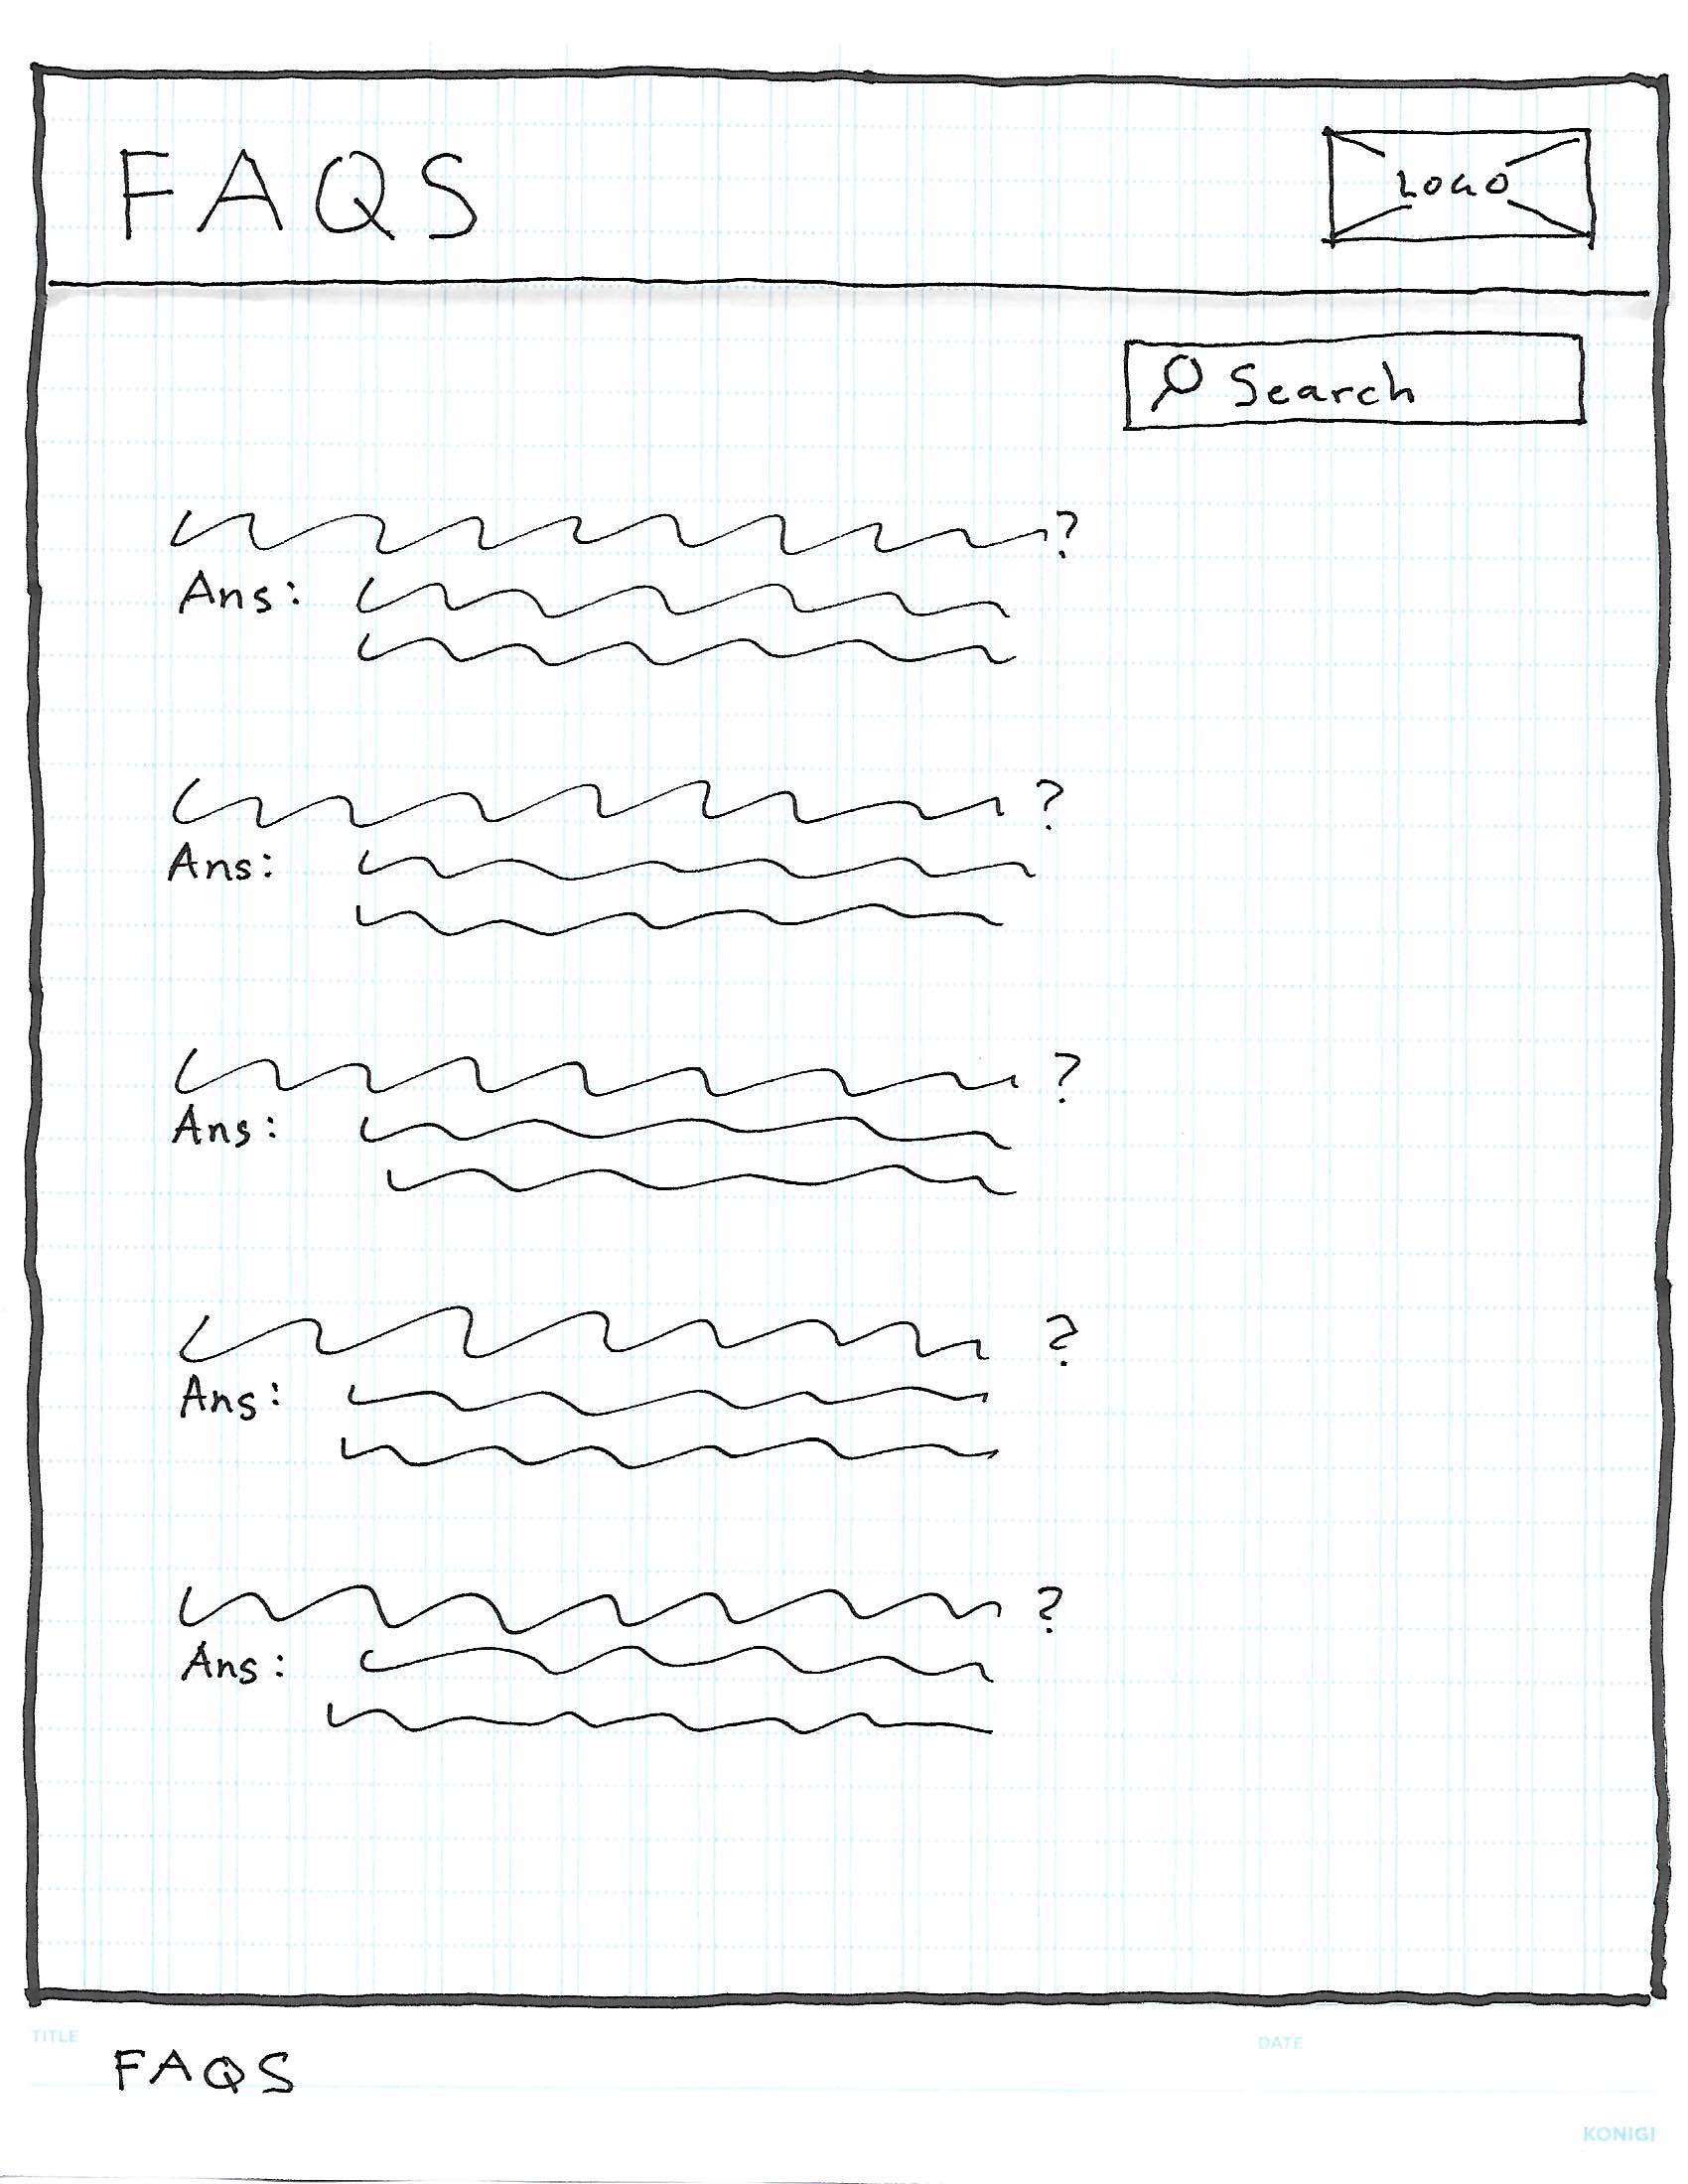 FAQS
LOGO
Search
?
Ans:
?
Ans:
?
Ans:
?
Ans:
?
Ans:
TITLE
DATE
FAQS
KONIGI